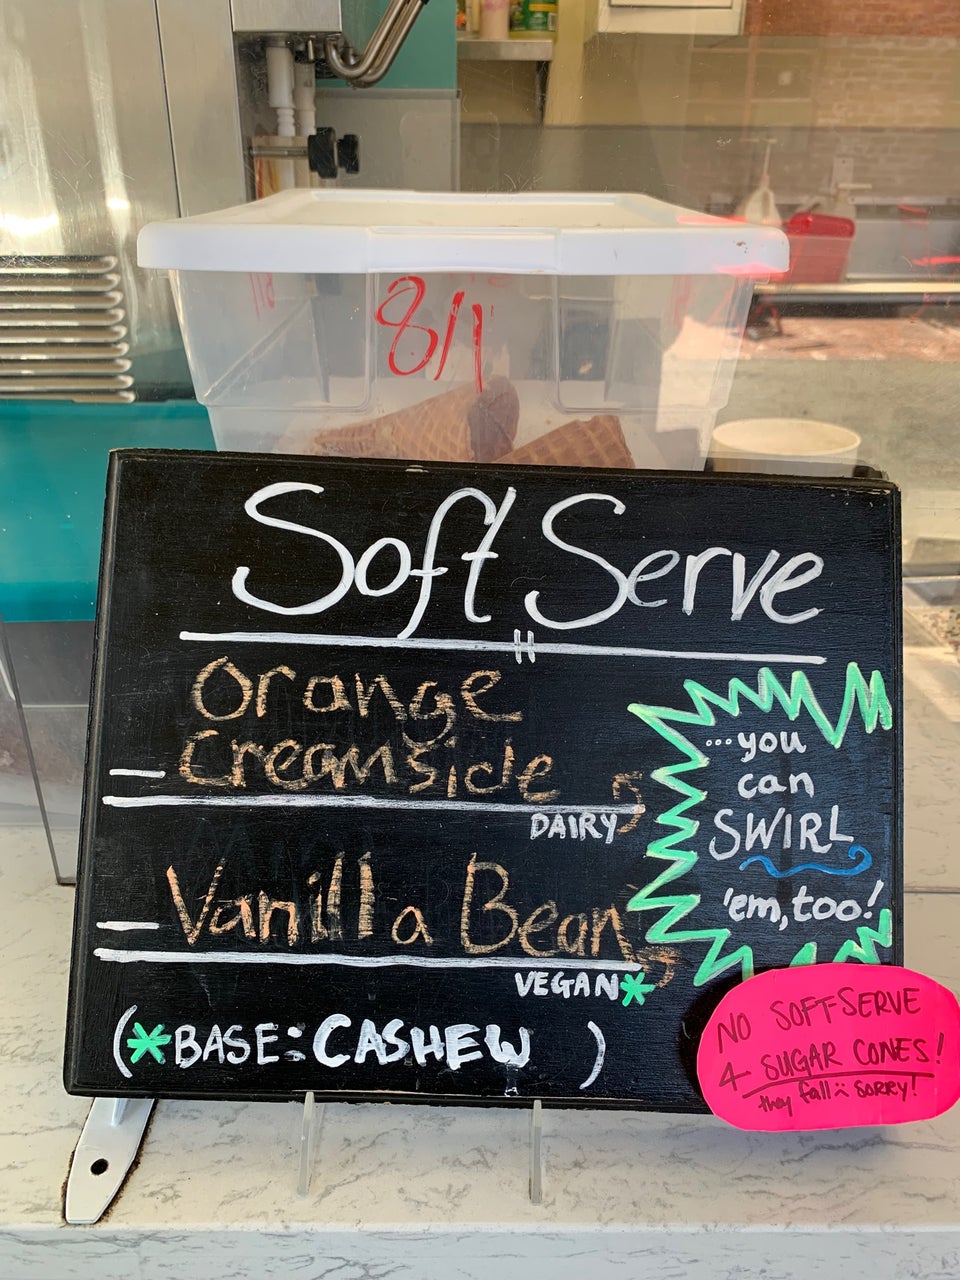 8/1
Soft Serve
Orange
Creamside
DAIRY
Vanilla Bean
VEGAN*
(*BASE: CASHEW )
...you
can
SWIRL
'em, too!
NO SOFT-SERVE
4 SUGAR CONES!
they fall :( SORRY!